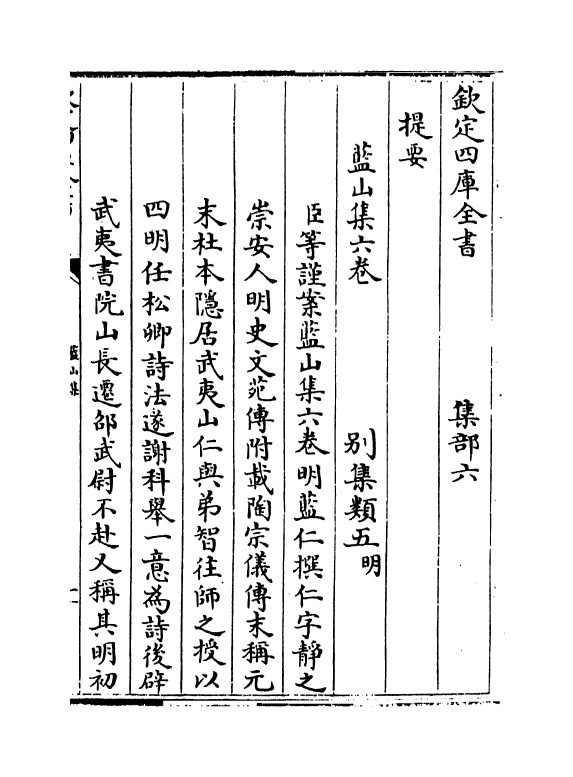 欽定四庫全書　集部六
提要
藍山集六卷　别集類五明
臣等謹案藍山集六卷明藍仁撰仁字靜之
崇安人明史文苑傳附載陶宗儀傳末稱元
末杜本隱居武夷山仁與弟智往師之授以
四明任松卿詩法遂謝科舉一意為詩後辟
武夷書院山長遷邵武尉不赴又稱其明初
藍山集